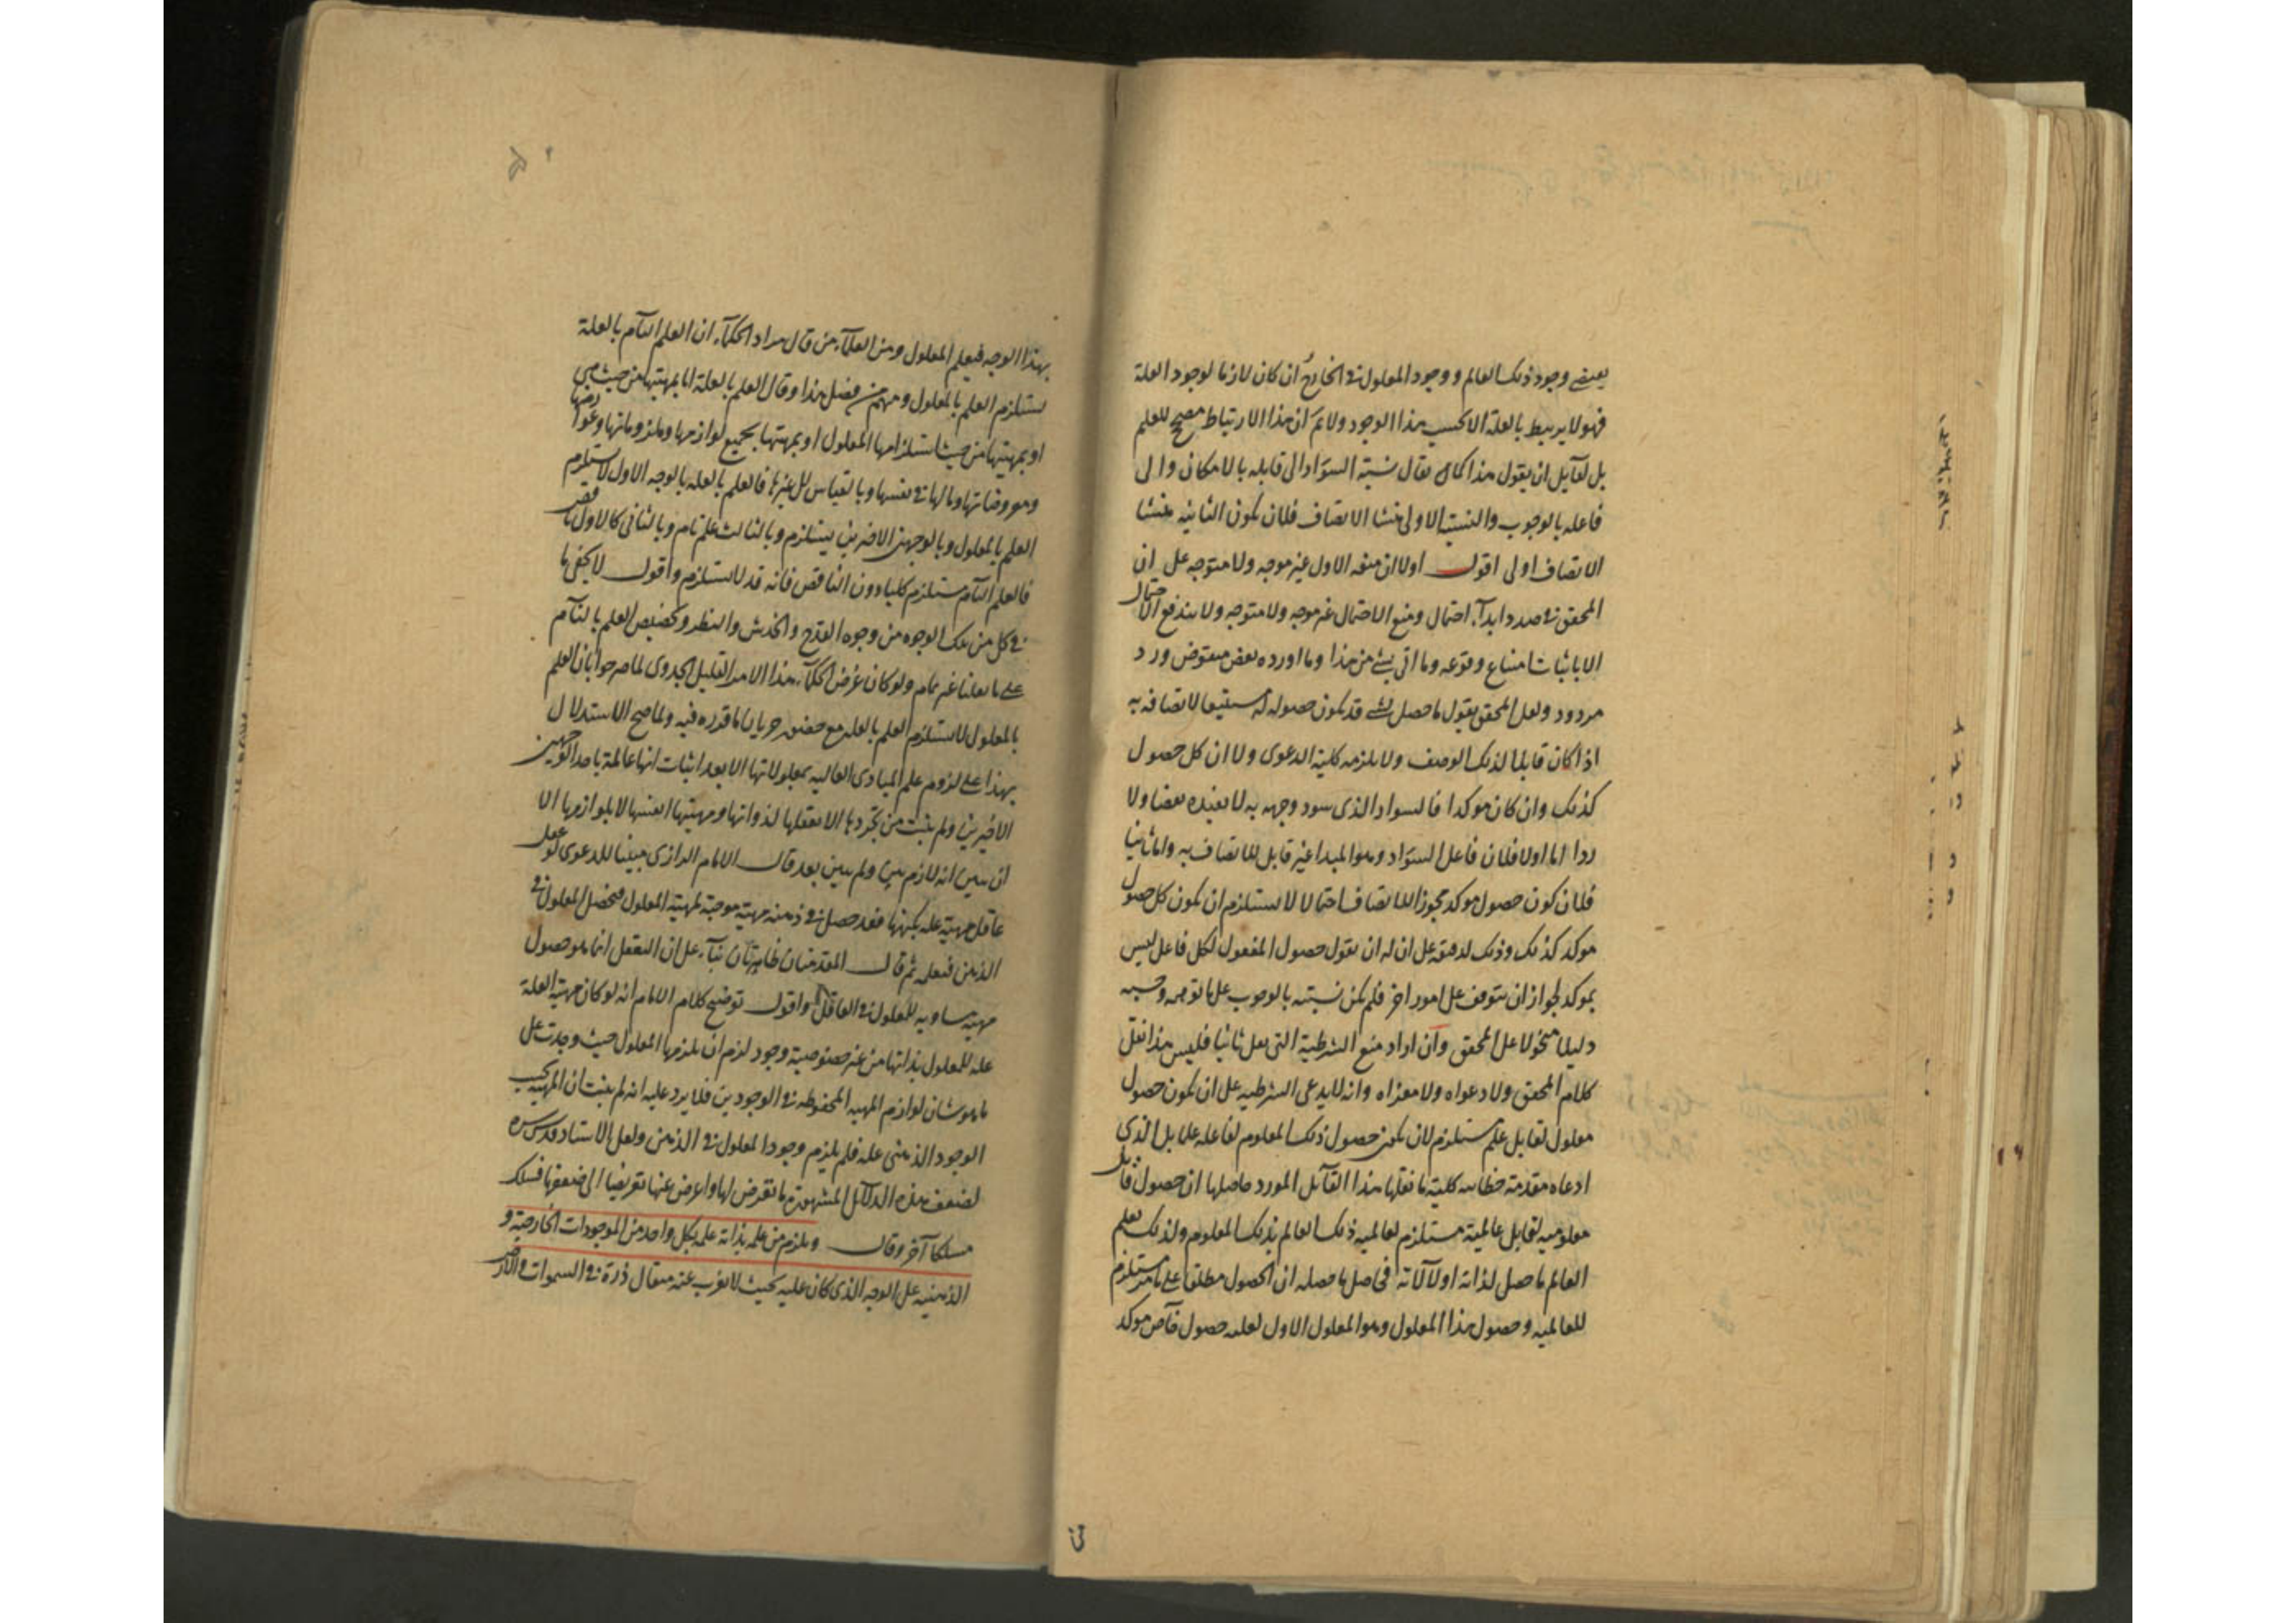 يقتضى وجود ذلك العالم و وجود المعلول فى الخارج ان كان لازما لوجود العلة
فهو لا يرتبط بالعلة الا بحسب هذا الوجود ولا نم ان هذا الارتباط مصحح للعلم
بل لقايل ان يقول هذا كما يقال نسبة السواد الى قابله بالامكان والى
فاعله بالوجوب والنسبة الاولى منشا الاتصاف فلان يكون الثانية منشا
الاتصاف اولى اقول اولا ان منعه الاول غير موجه ولا متوجه على ان
المحقق فى صدد ابداء احتمال ومنع الاحتمال غير موجه ولا متوجه ولا يندفع الاحتمال
الا باثبات امتناع وقوعه وما اتى بشئ من هذا وما اورده بعض منقوض ورد
مردود ولعل المحقق يقول ما حصل لشئ قد يكون حصوله له مستتبعا لاتصافه به
اذا كان قابلا لذلك الوصف ولا يلزمه كلية الدعوى ولا ان كل حصول
كذلك وان كان موكدا فالسواد الذى سود وجهه به لا يفيده نقضا ولا
ردا اما اولا فلان فاعل السواد وهو المبدا غير قابل للاتصاف به واما ثانيا
فلان كون حصول موكد مجوزا للاتصاف احتمالا لا يستلزم ان يكون كل حصول
موكد كذلك وذلك لدقته على ان له ان يقول حصول المفعول لكل فاعل ليس
بموكد لجواز ان يتوقف على امور اخر فلم يكن نسبته بالوجوب على ما توهمه وحسبه
دليلا منخولا على المحقق وان اراد منع الشرطية التى نقل ثانيا فليس هذا نقل
كلام المحقق ولا دعواه ولا مغزاه وانه لا يدعى الشرطية على ان يكون حصول
معلول لقابل علم مستلزم لان يكون حصول ذلك المعلوم لفاعله علما بل الذى
ادعاه مقدمة خطابية كلية ما نقلها هذا القائل المورد حاصلها ان حصول قابل
معلومية لقابل عالمية مستلزم لعالمية ذلك العالم بذلك المعلوم ولذلك يعلم
العالم ما حصل لذاته او لآلاته فحاصل ما حصله ان الحصول مطلقا على ما مر مستلزم
للعالمية وحصول هذا المعلول وهو المعلول الاول لعلته حصول خاص موكد
فى
بهذا الوجه فيعلم المعلول ومن العلماء من قال مراد الحكماء ان العلم التام بالعلة
يستلزم العلم بالمعلول ومنهم من فصل هذا وقال العلم بالعلة اما بمهيتها من حيث هى
او بمهيتها من حيث استلزامها المعلول او بمهيتها بجميع لوازمها وملزوماتها وعوارضها
ومعروضاتها وما لها فى نفسها وبالقياس الى غيرها فالعلم بالعلة بالوجه الاول لا يستلزم
العلم بالمعلول وبالوجهين الاخيرين يستلزم وبالثالث علم تام وبالثانى كالاول ناقص
فالعلم التام مستلزم كليا دون الناقص فانه قد لا يستلزم واقول لا يخفى ما
فى كل من تلك الوجوه من وجوه القدح والخدش والنظر وتخصيص العلم بالتام
على ما نقلنا غير تمام ولو كان غرض الحكماء هذا الامر القليل الجدوى لما صرحوا بان العلم
بالمعلول لا يستلزم العلم بالعلة مع جريان ما قدره فيه ولما صح الاستدلال
بهذا على لزوم علم المبادى العالية بمعلولاتها الا بعد اثبات انها عالمة باحد الوجهين
الاخيرين ولم يثبت من تجردها الا تعقلها لذواتها ومهيتها انفسها لا بلوازمها الا
ان يبين انه لازم بين ولم يبين بعد قال الامام الرازى مبينا للدعوى لو عقل
عاقل مهية علة بكنهها فقد حصل فى ذهنه مهية موجبة لمهية المعلول فتحصل المعلول فى
الذهن فيعلمه ثم قال المقدمتان ظاهرتان بناء على ان التعقل انما هو حصول
مهية مساوية للمعلول فى العاقل واقول توضيح كلام الامام انه لو كان مهية العلة
علة للمعلول بذاتها من غير خصوصية وجود لزم ان يلزمها المعلول حيث وجدت على
ما هو شان لوازم المهية المحفوظة فى الوجودين فلا يرد عليه انه لم يثبت ان المهية بحسب
الوجود الذهنى علة فلم يلزم وجود المعلول فى الذهن ولعل الاستاد قدس سره
لضعف هذه الدلائل المشهورة ما تعرض لها واعرض عنها تعريضا الى ضعفها فسلك
مسلكا آخر وقال ويلزم من علمه بذاته علمه بكل واحد من الموجودات الخارجية و
الذهنية على الوجه الذى كان عليه بحيث لا يعزب عنه مثقال ذرة فى السموات والارض